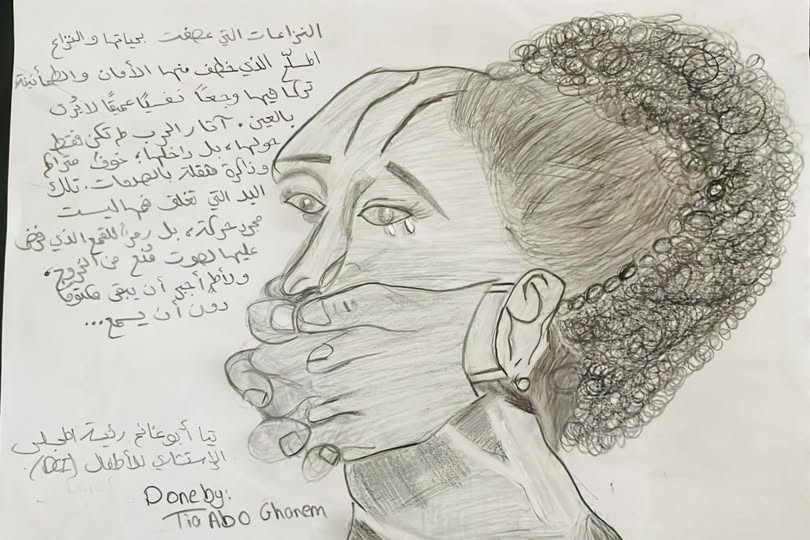 النزاعات التي عصفت بحياتها والنزاع
المسلّح الذي خطف منها الأمان والطمأنينة
تركا فيها وجعاً نفسيًا عميقًا لا يُرى
بالعين. آثار الحرب لم تكن فقط
حولها، بل داخلها، خوفٌ متراكم
وذاكرة مثقلة بالصدمات. تلك
اليد التي تغلف فمها ليست
مجرد حركة، بل رمز للقمع الذي فرض
عليها لصوت مُنع من الخروج،
ولألم أُجبر أن يبقى مكتومًا
دون أن يسمع...
تيا أبو غانم رئيسة المجلس
الإستشاري للأطفال (DCI).
Done by:
Tia Abo Ghanem